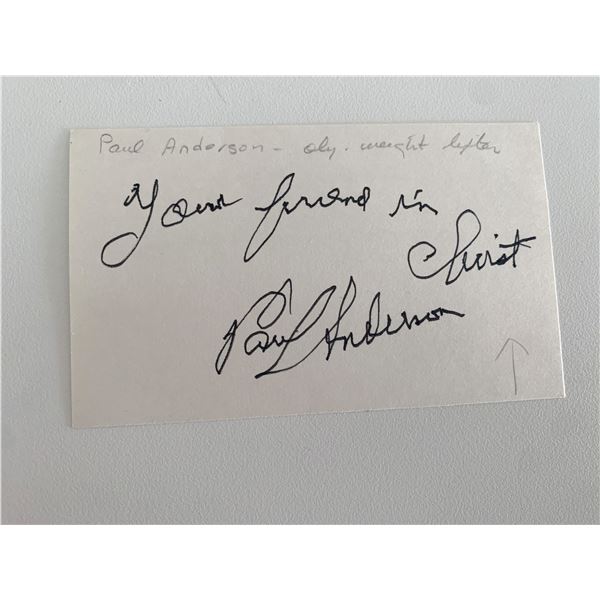 Paul Anderson - oly. weight lifter
Your friend in
Christ
Paul Anderson